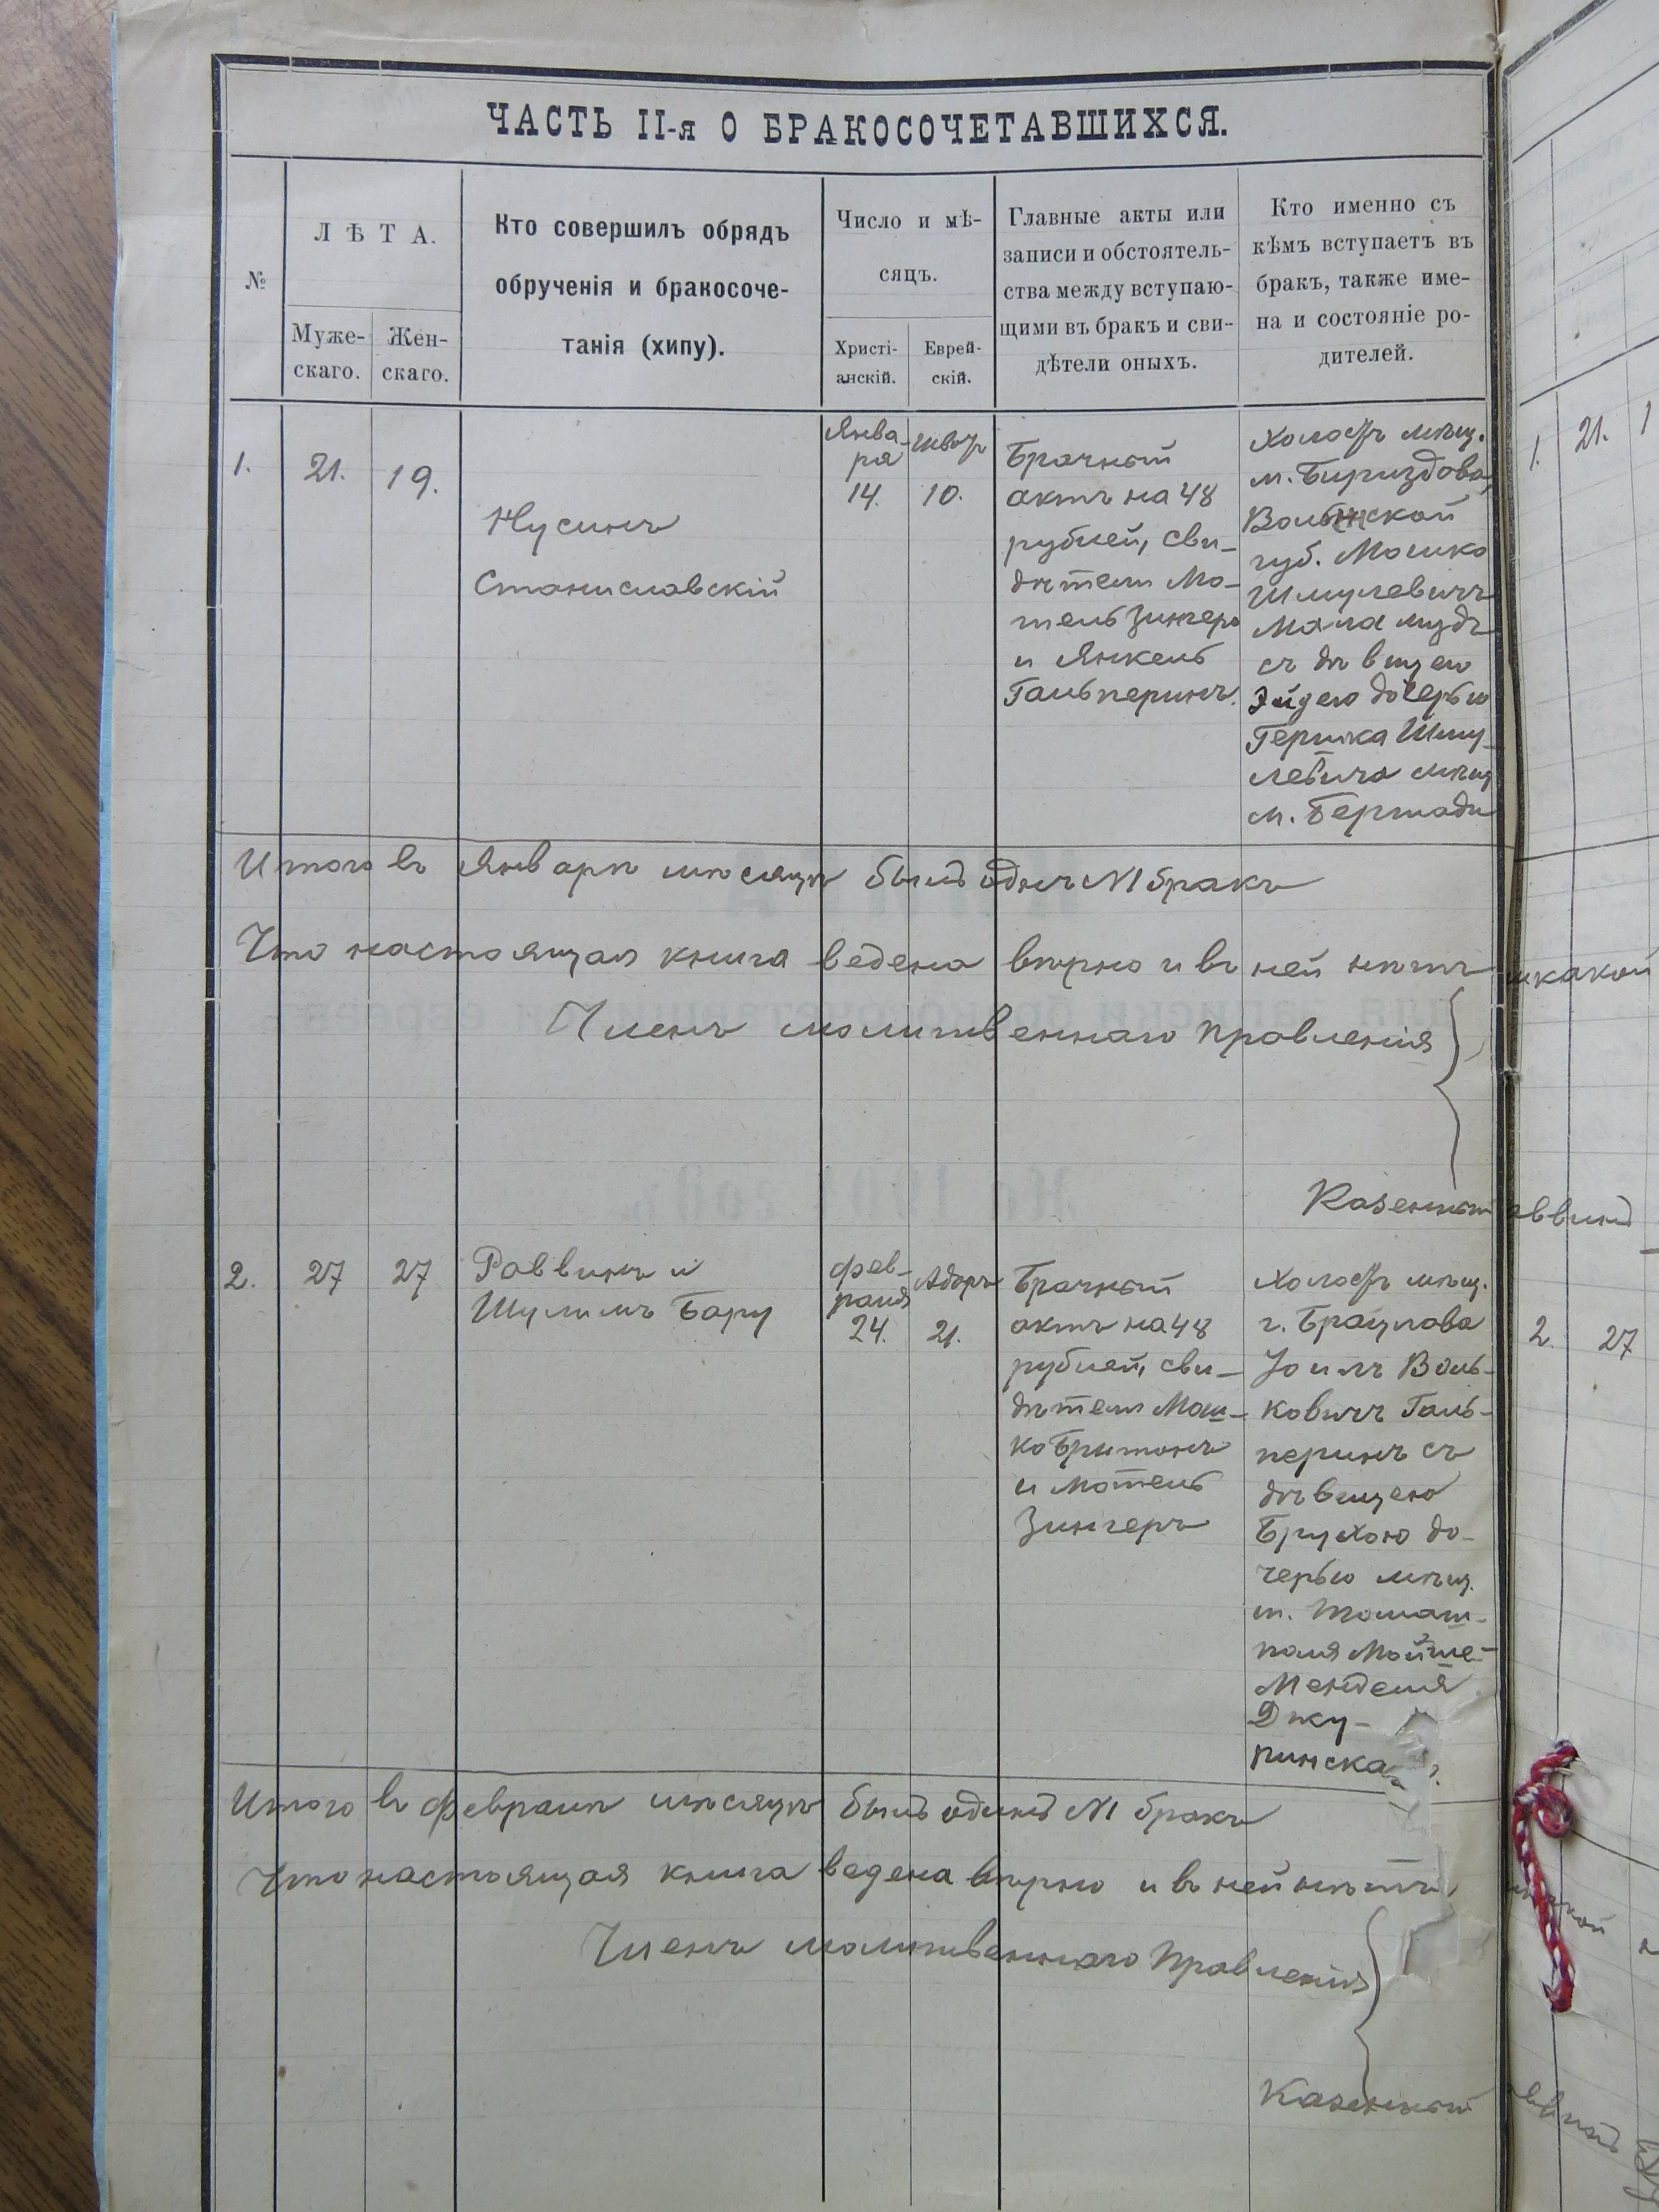 ЧАСТЬ II-я О БРАКОСОЧЕТАВШИХСЯ.
№
ЛѢТА.
Муже-
скаго.
Жен-
скаго.
Кто совершилъ обрядъ
обрученія и бракосоче-
танія (хипу).
Число и мѣ-
сяцъ.
Христі-
анскій.
Еврей-
скій.
Главные акты или
записи и обстоятель-
ства между вступаю-
щими въ бракъ и сви-
дѣтели оныхъ.
Кто именно съ
кѣмъ вступаетъ въ
бракъ, также име-
на и состояніе ро-
дителей.
1.
21.
19.
Нусинъ
Станиславскій
Янва-
ря
14.
Шватъ
10.
Брачный
актъ на 48
рублей, сви-
дѣтели Мо-
тель Зингеръ
и Янкель
Гальперинъ.
Холостъ мѣщ.
м. Бириздова,
Волынской
губ. Мошко
Шмулевичъ
Маламудъ
съ дѣвицею
Эйдею дочерью
Гершка Шму-
левича мѣщ
м. Бершади
1.
21.
1
Итого въ Январѣ мѣсяцѣ былъ одинъ №1 бракъ
Что настоящая книга ведена вѣрно и въ ней нѣтъ никакой
Членъ молитвеннаго правленія
Казенный раввинъ
2.
27
27
Раввинъ и
Шулимъ Бару
Фев-
раля
24.
Адаръ
21.
Брачный
актъ на 48
рублей, сви-
дѣтели Мош-
ко Бритонъ
и Мотель
Зингеръ
Холостъ мѣщ.
г. Браулова
Іоилъ Воль-
ковичъ Галь-
перинъ съ
дѣвицею
Брухою до-
черью мѣщ.
м. Томаш-
поля Мойше-
Менделя
Джу-
ринска
2.
27
Итого въ Февралѣ мѣсяцѣ былъ одинъ №1 бракъ
Что настоящая книга ведена вѣрно и въ ней нѣтъ
Членъ молитвеннаго Правленія
Казенный